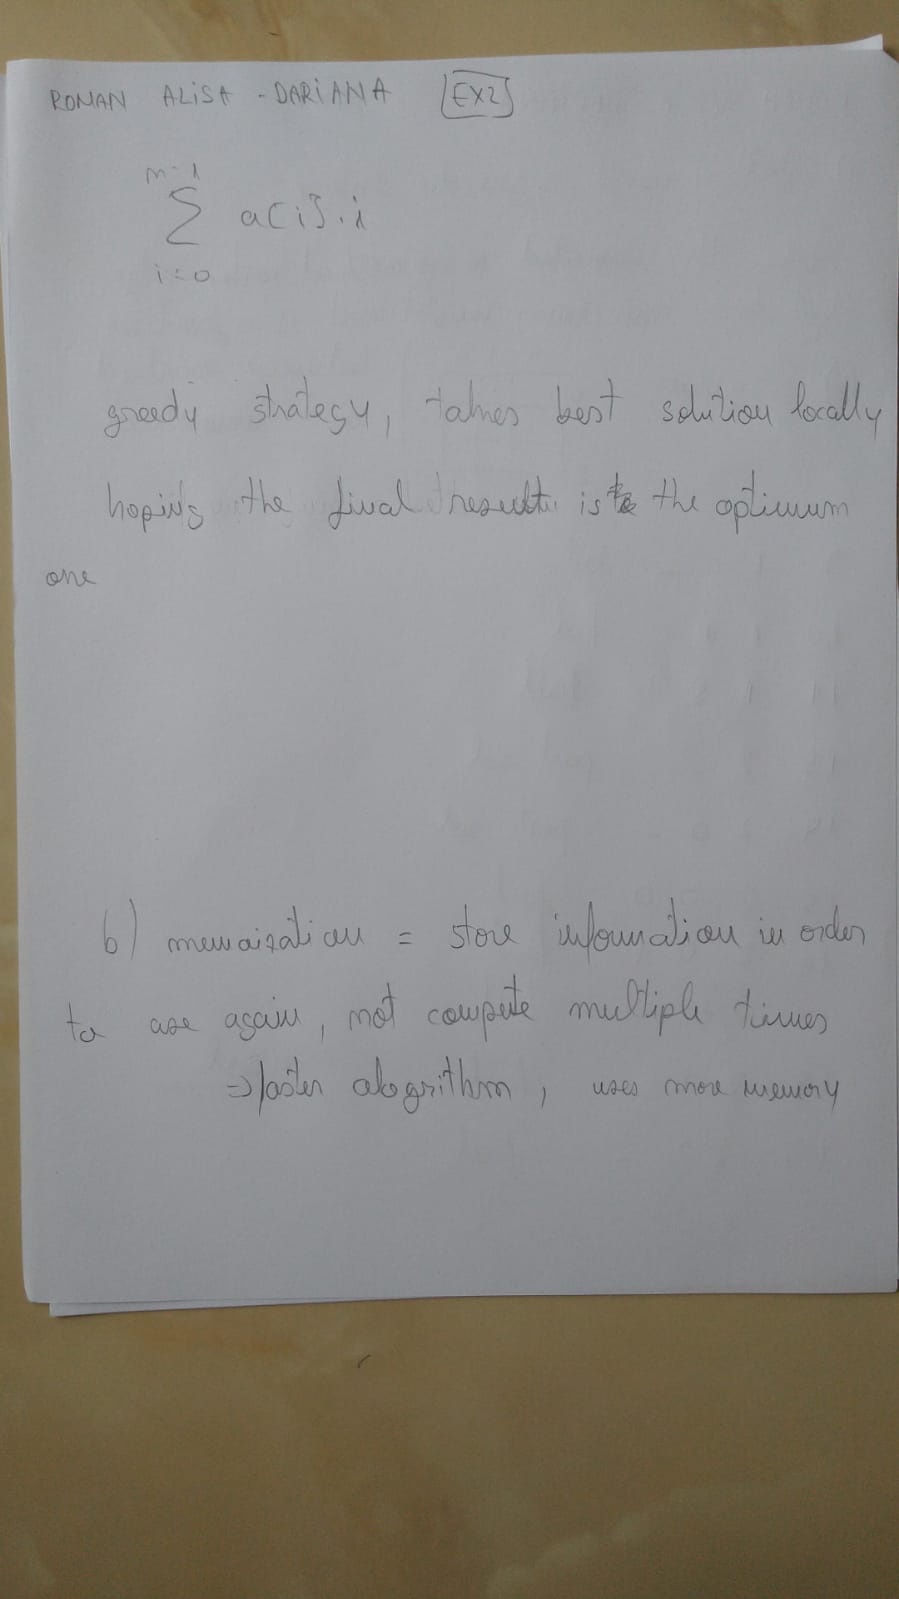 ROMAN ALISA - DARIANA EX2
n-1
Σ a[i].i
i=0
greedy strategy, takes best solution locally
hoping the final result is the optimum
one
b) memoization = store information in order
to use again, not compute multiple times
=> faster alogrithm, uses more memory